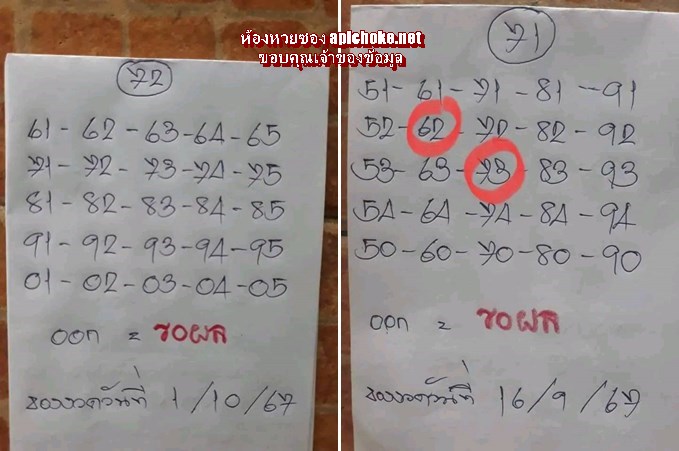 ห้องหวยซอง apichoke.net
ขอบคุณเจ้าของข้อมูล
72
61-62-63-64-65
71-72-73-74-75
81-82-83-84-85
91-92-93-94-95
01-02-03-04-05
ออก = รอผล
ของงวดวันที่ 1/10/67
71
51-61-71-81-91
52-62-72-82-92
53-63-73-83-93
54-64-74-84-94
50-60-70-80-90
ออก = รอผล
ของงวดวันที่ 16/9/67